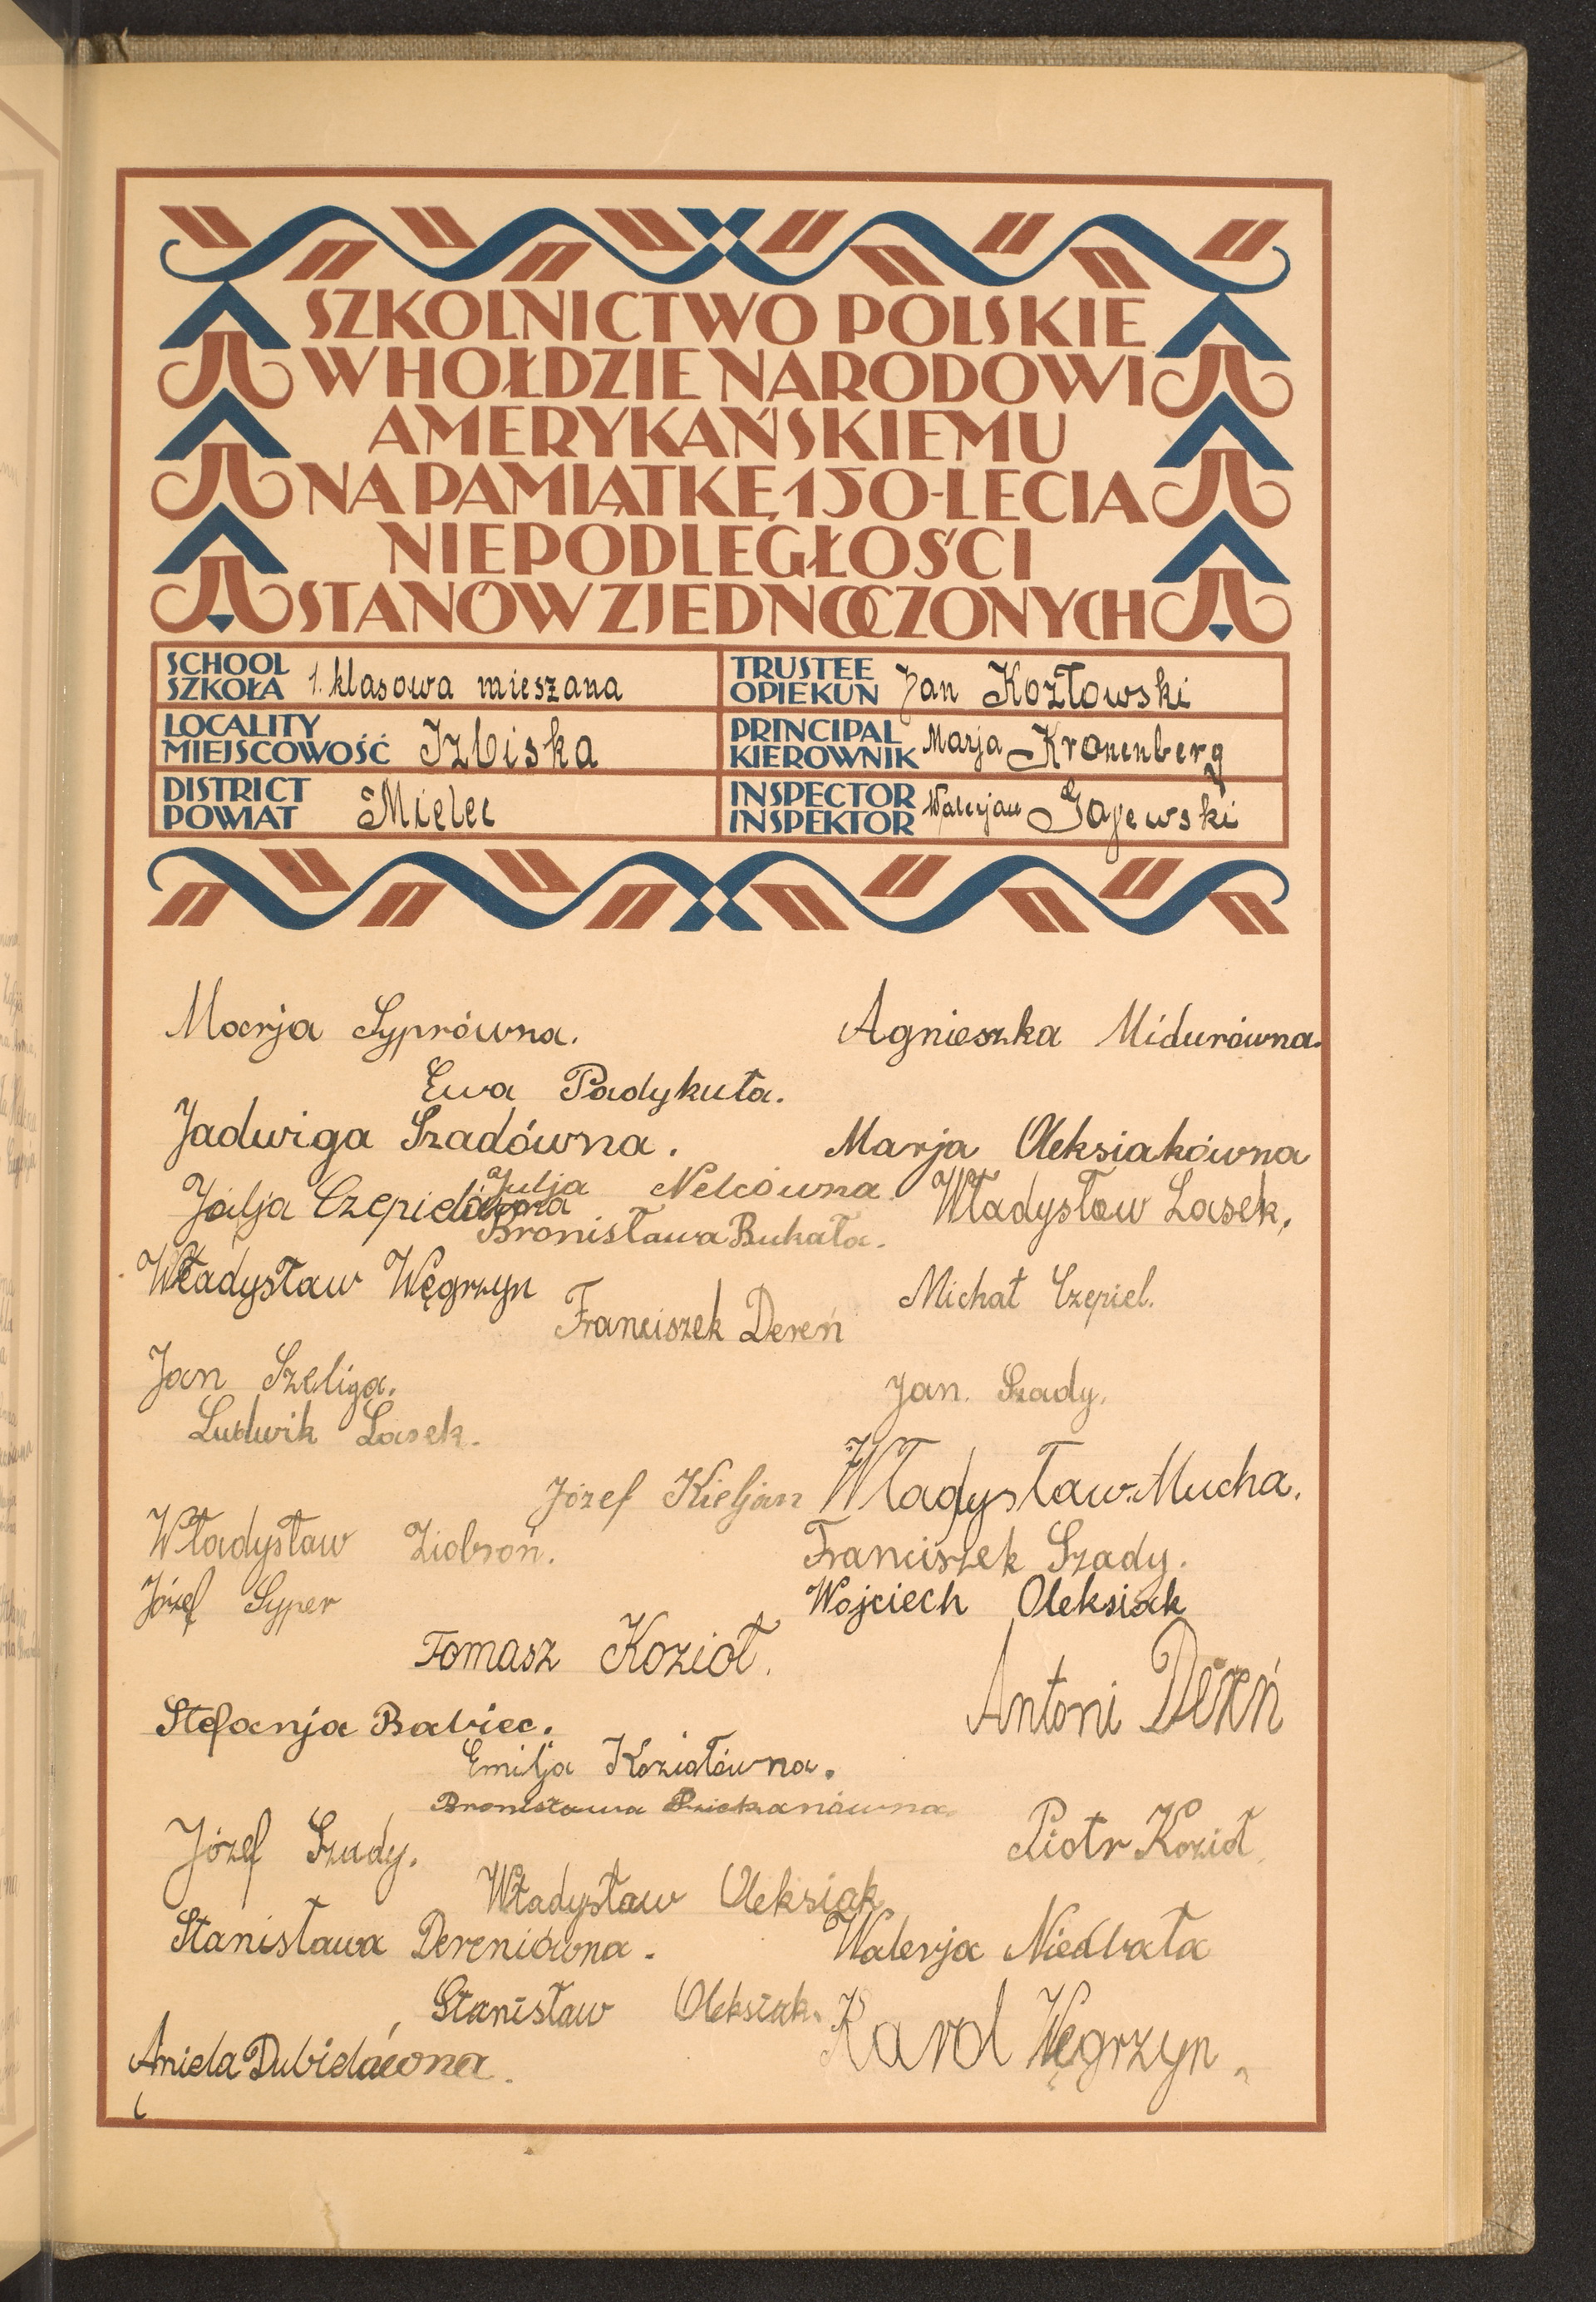 SZKOLNICTWO POLSKIE
W HOŁDZIE NARODOWI
AMERYKAŃSKIEMU
NA PAMIĄTKĘ 150-LECIA
NIEPODLEGŁOŚCI
STANÓW ZJEDNOCZONYCH
SCHOOL
SZKOŁA 1. klasowa mieszana
TRUSTEE
OPIEKUN Jan Kozłowski
LOCALITY
MIEJSCOWOŚĆ Izbiska
PRINCIPAL
KIEROWNIK Marja Kronenberg
DISTRICT
POWIAT Mielec
INSPECTOR
INSPEKTOR Walerjan Gajewski
Marja Syprówna.
Agnieszka Midurówna.
Ewa Padykuła.
Jadwiga Szadówna.
Marja Oleksiakówna
Julja Nelcówna.
Julja Czepielówna
Władysław Lasek.
Bronisława Bukała.
Władysław Węgrzyn
Michał Czepiel.
Franciszek Dereń
Jan Szeliga.
Jan. Szady.
Ludwik Lasek.
Józef Kieljan
Władysław Mucha.
Władysław Ziobroń.
Franciszek Szady.
Józef Syper
Wojciech Oleksiak
Tomasz Kozioł.
Antoni Dereń
Stefanja Babiec.
Emilja Koziołówna.
Bronisława
Józef Szady.
Piotr Kozioł.
Władysław Oleksiak
Stanisława Dereniówna.
Walerja Niedbała
Stanisław Oleksiak.
Karol Węgrzyn.
Aniela Dubielówna.